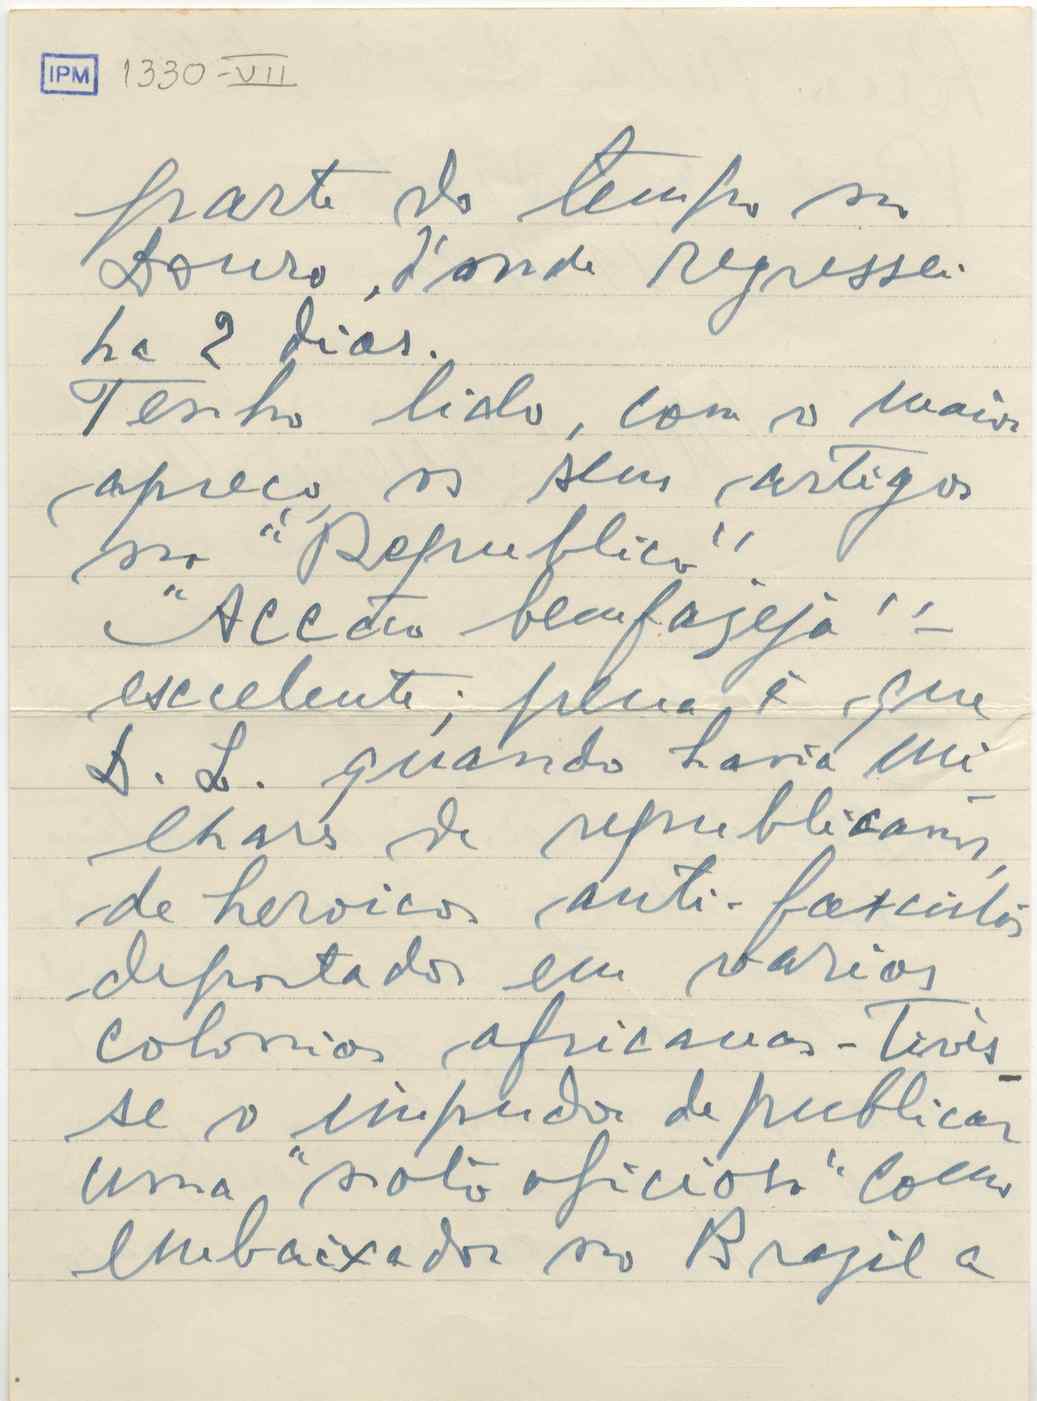 IPM 1330-VII
parte do tempo no
Douro, d'onde regressei
ha 2 dias.
Tenho lido, com o maior
apreço, os seus artigos
na "Republica"
"Acção bemfazeja" -
excelente; pena é que
D. L. quando havia mi-
lhares de republicanos,
de heroicos anti-fascistas
deportados em varias
colonias africanas - tives-
se o impudor de publicar
uma "nota oficiosa" como
embaixador no Brazil a